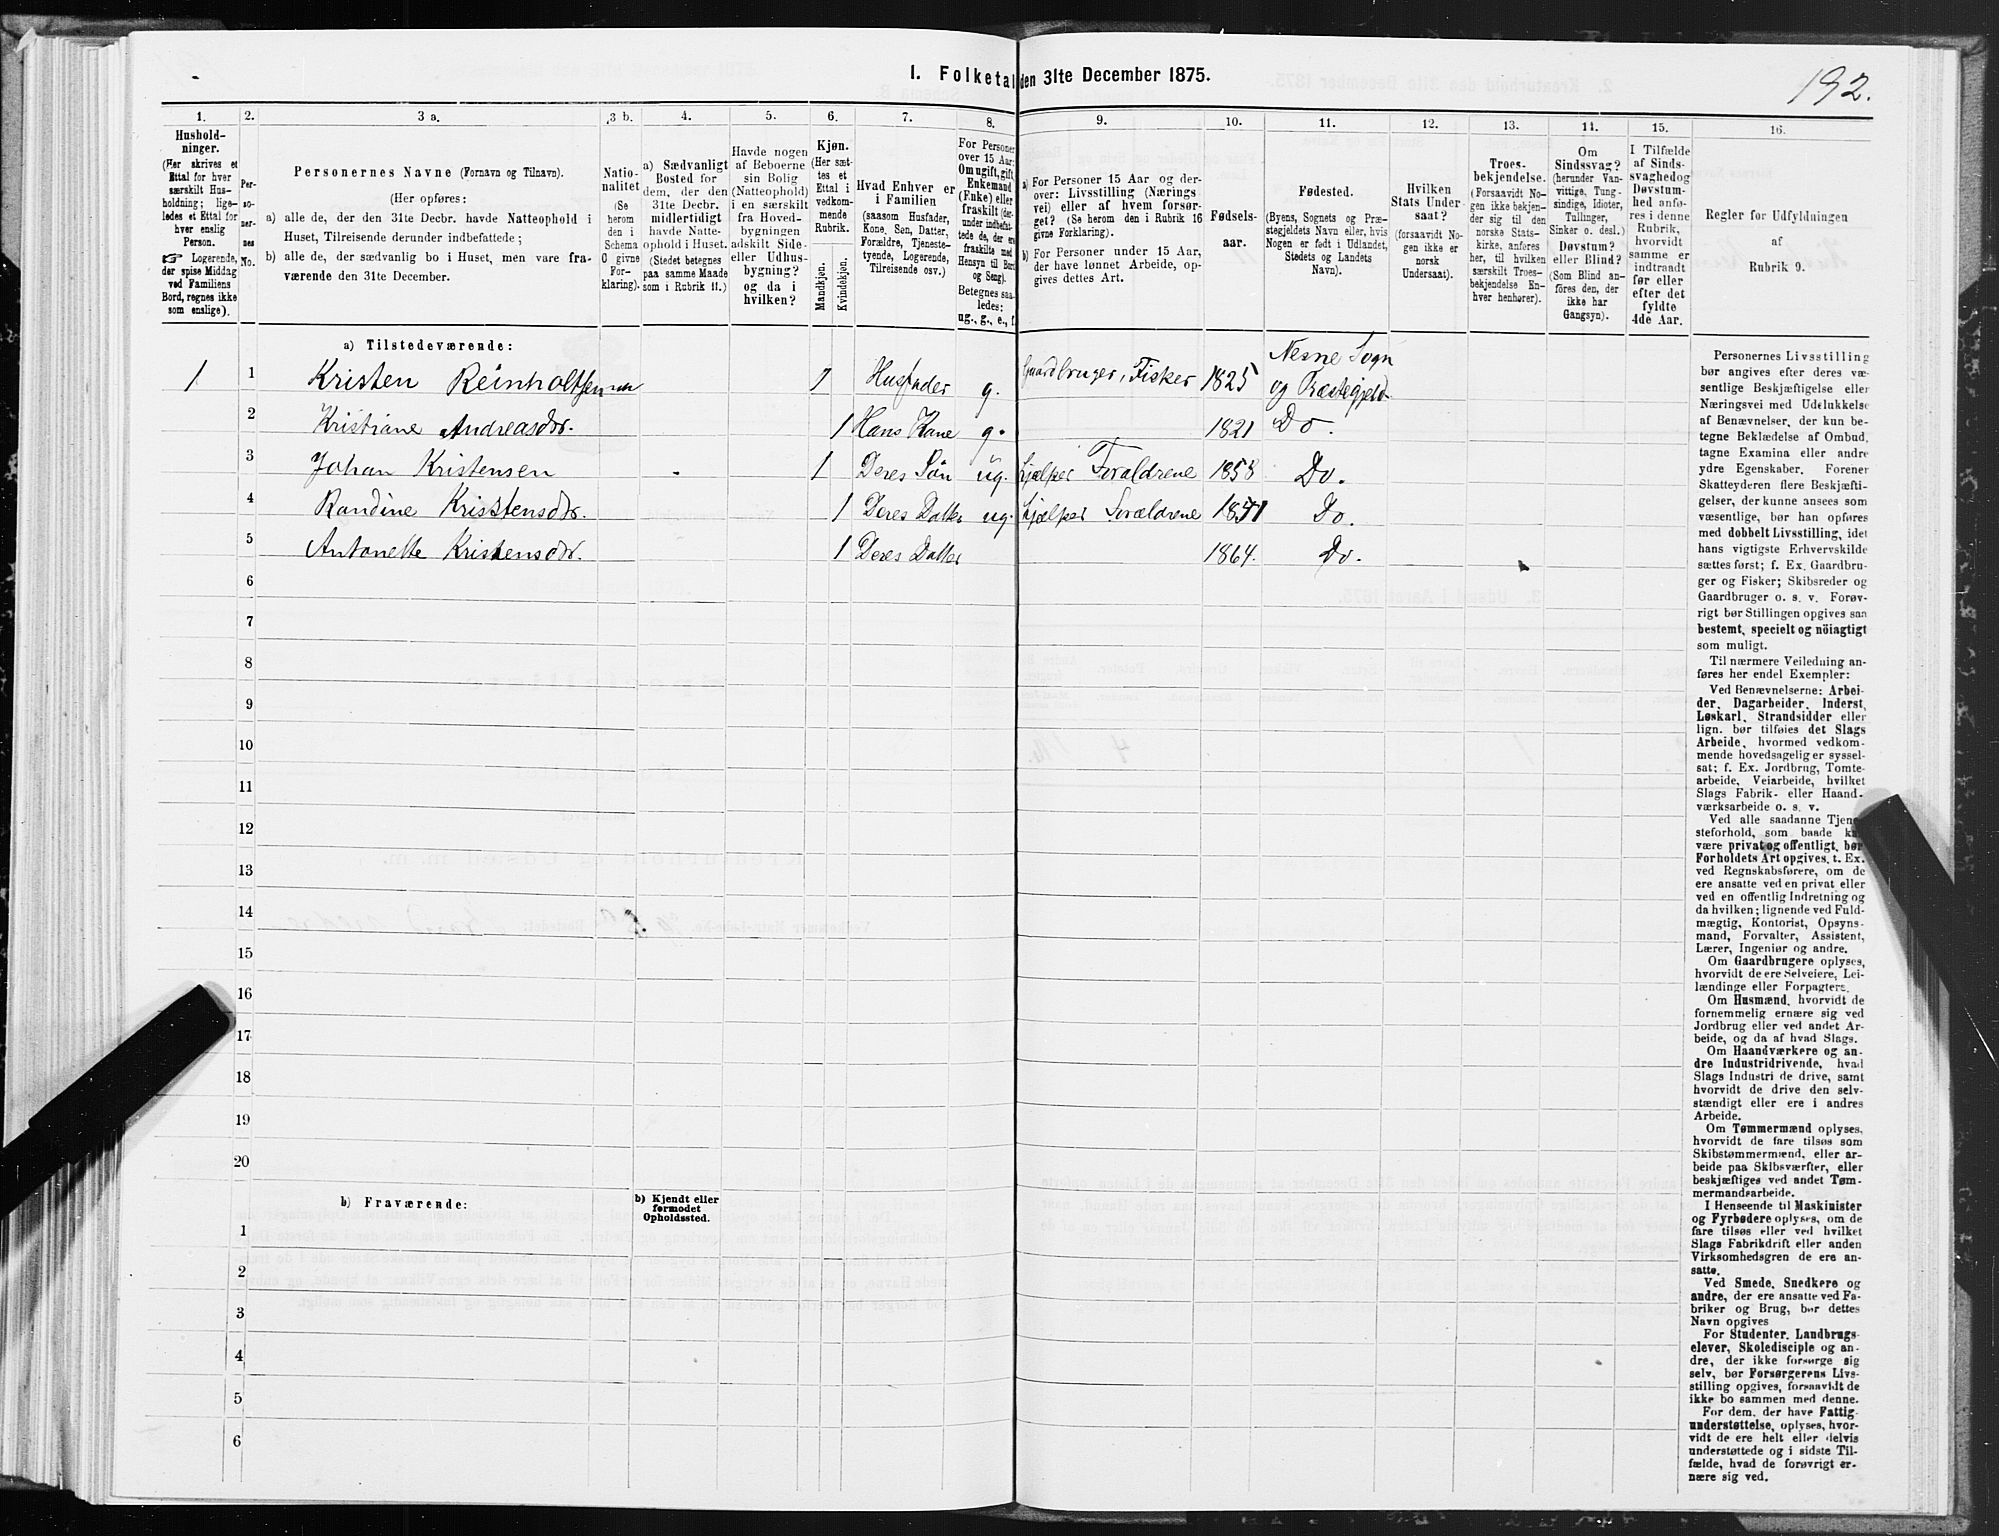 I. Folketal den 31te December 1875.
192.
1.
Hushold-
ninger.
(Her skrives et
Ettal for hver
særskilt Hus-
holdning; lige-
ledes et Ettal for
hver enslig
Person.
☞ Logerende,
der spise Middag
ved Familiens
Bord, regnes ikke
som enslige).
2.
Per-
so-
ner-
nes
No.
3 a.
Personernes Navne (Fornavn og Tilnavn).
(Her opføres:
a) alle de, der den 31te Decbr. havde Natteophold i
Huset, Tilreisende derunder indbefattede;
b) alle de, der sædvanlig bo i Huset, men vare fra-
værende den 31te December.
3 b.
Natio-
nalitet
(Se
herom
den i
Schema
O givne
For-
klaring).
4.
a) Sædvanligt
Bosted for
dem, der den
31te Decbr.
midlertidigt
havde Natte-
ophold i Huset.
(Stedet betegnes
paa samme Maade
som i Rubrik 11.)
5.
Havde nogen
af Beboerne
sin Bolig
(Natteophold)
i en særskilt
fra Hoved-
bygningen
adskilt Side-
eller Udhus-
bygning?
og da i
hvilken?
6.
Kjøn.
(Her sæt-
tes et
Ettal i
vedkom-
mende
Rubrik.
Mandkjøn.
Kvindekjøn.
7.
Hvad Enhver er
i Familien
(saasom Husfader,
Kone, Søn, Datter,
Forældre, Tjeneste-
tyende, Logerende,
Tilreisende osv.)
8.
For Personer
over 15 Aar:
Om ugift, gift,
Enkemand
(Enke) eller
fraskilt (der-
under indbefat-
tede de, der ere
fraskilte med
Hensyn til Bord
og Seng).
Betegnes saa-
ledes:
ug., g., e., f.
9.
a) For Personer 15 Aar og der-
over: Livsstilling (Nærings-
vei) eller af hvem forsør-
get? (Se herom den i Rubrik 16
givne Forklaring).
b) For Personer under 15 Aar,
der have lønnet Arbeide, op-
gives dettes Art.
10.
Fødsels-
aar.
11.
Fødested.
(Byens, Sognets og Præ-
stegjeldets Navn eller, hvis
Nogen er født i Udlandet,
Stedets og Landets
Navn).
12.
Hvilken
Stats Under-
saat?
(forsaavidt No-
gen ikke er
norsk
Undersaat).
13.
Troes-
bekjendelse.
(Forsaavidt No-
gen ikke bekjen-
der sig til den
norske Stats-
kirke, anføres
her, til hvilken
særskilt Troes-
bekjendelse En-
hver henhører).
14.
Om
Sindssvag?
(herunder Van-
vittige, Tung-
sindige, Idioter,
Tullinger,
Sinker o. desl.)
Døvstum?
eller Blind?
(Som Blind an-
føres den, der
ikke har
Gangsyn).
15.
I Tilfælde
af Sinds-
svaghed og
Døvstum-
hed anfø-
res i denne
Rubrik,
hvorvidt
samme er
indtraadt
før eller
efter det
fyldte
4de Aar.
16.
Regler for Udfyldningen
af
Rubrik 9.
a) Tilstedeværende:
1 1 Kristen Reinholtsen 1 Husfader g. Gaardbruger, Fisker 1825 Nesne Sogn
og Præstegjeld
2 Kristiane Andreasdr. 1 Hans Kone g. 1821 Do.
3 Johan Kristensen 1 Deres Søn ug. hjælper Forældrene 1858 Do.
4 Randine Kristensdr. 1 Deres Datter ug. hjælper Forældrene Do.
5 Antonette Kristensdr. 1 Deres Datter 1864. Do.
6
7
8
9
10
11
12
13
14
15
16
17
18
19
20
b) Fraværende:
b) Kjendt eller
formodet
Opholdssted.
1
2
3
4
5
6
Personernes Livsstilling
bør angives efter deres væ-
sentlige Beskjæftigelse eller
Næringsvei med Udelukkelse
af Benævnelser, der kun be-
tegne Beklædelse af Ombud,
tagne Examina eller andre
ydre Egenskaber. Forener
Skatteyderen flere Beskjæfti-
gelser, der kunne ansees som
væsentlige, bør han opføres
med dobbelt Livsstilling, idet
hans vigtigste Erhvervskilde
sættes først; f. Ex. Gaardbru-
ger og Fisker; Skibsreder og
Gaardbruger o. s. v. Forøv-
rigt bør Stillingen opgives saa
bestemt, specielt og nöiagtigt
som muligt.
Til nærmere Veiledning an-
føres her endel Exempler:
Ved Benævnelserne: Arbei-
der, Dagarbeider, Inderst,
Løskarl, Strandsidder eller
lign. bør tilføies det Slags
Arbeide, hvormed vedkom-
mende hovedsagelig er syssel-
sat; f. Ex. Jordbrug, Tomte-
arbeide, Veiarbeide, hvilket
Slags Fabrik- eller Haand-
værksarbeide o. s. v.
Ved alle saadanne Tjene-
steforhold, som baade kan
være privat og offentligt, bør
Forholdets Art opgives, t. Ex.
ved Regnskabsførere, om de
ere ansatte ved en privat eller
ved en offentlig Indretning og
da hvilken; lignende ved Fuld-
mægtig, Kontorist, Opsyns-
mand, Forvalter, Assistent,
Lærer, Ingeniør og andre.
Om Gaardbrugere oplyses,
hvorvidt de ere Selveiere, Lei-
lændinge eller Forpagtere.
Om Husmænd, hvorvidt de
fornemmelig ernære sig ved
Jordbrug eller ved andet Ar-
beide, og da af hvad Slags.
Om Haandværkere og an-
dre Industridrivende, hvad
Slags Industri de drive, samt
hvorvidt de drive den selv-
stændigt eller ere i andres
Arbeide.
Om Tømmermænd oplyses,
hvorvidt de fare tilsøs som
Skibstømmermænd, eller ar-
beide paa Skibsværfter, eller
beskjæftiges ved andet Tøm-
mermandsarbeide.
I Henseende til Maskinister
og Fyrbødere oplyses, om de
fare tilsøs eller ved hvilket
Slags Fabrikdrift eller anden
Virksomhedsgren de ere an-
satte.
Ved Smede, Snedkere og
andre, der ere ansatte ved Fa-
briker og Brug, bør dettes
Navn opgives
For Studenter, Landbrugs-
elever, Skoledisciple og an-
dre, der ikke forsørge sig
selv, bør Forsørgerens Livs-
stilling opgives, forsaavidt de
ikke bo sammen med denne.
For dem, der have Fattig-
understøttelse, oplyses, hvor-
vidt de ere helt eller delvis
understøttede og i sidste Til-
fælde, hvad de forøvrigt er-
nære sig ved.